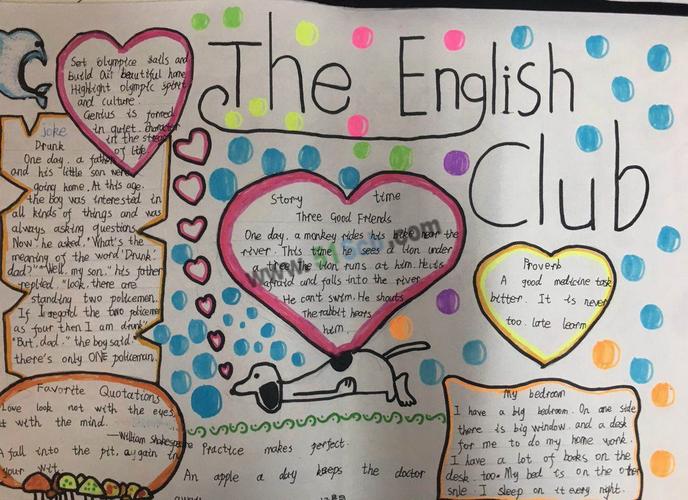 The English
Club
Set Olympics sails and
build Our beautiful home
Highlight olympic spirit
and culture.
Genius is formed
in quiet, character
in the stream
of life
joke
Drunk
One day, a father
and his little son were
going home. At this age,
the boy was interested in
all kinds of things and was
always asking questions.
Now he asked, "What's the
meaning of the word 'Drunk',
dad?" "Well, my son," his father
replied, "look, there are
standing two policemen.
If I regard the two policemen
as four then I am drunk."
"But, dad," the boy said
there's only ONE policeman.
Story time
Three Good Friends
One day, a monkey rides his bike near the
river. This time he sees a lion under
a tree. The lion runs at him. He is
afraid and falls into the river.
He can't swim. He shouts
The rabbit hears
him.
Proverb
A good medicine task
bitter. It is never
too late learn
Favorite Quotations
Love look not with the eyes,
t with the mind.
—William Shakespeare
A fall into the pit, a gain in
your wit.
Practice makes perfect.
An apple a day keeps the doctor
My bedroom
I have a big bedroom. On one side
there is big window. and a desk
for me to do my home work.
I have a lot of books on the
desk. too. My bed is on the other
side. I sleep on it every night.